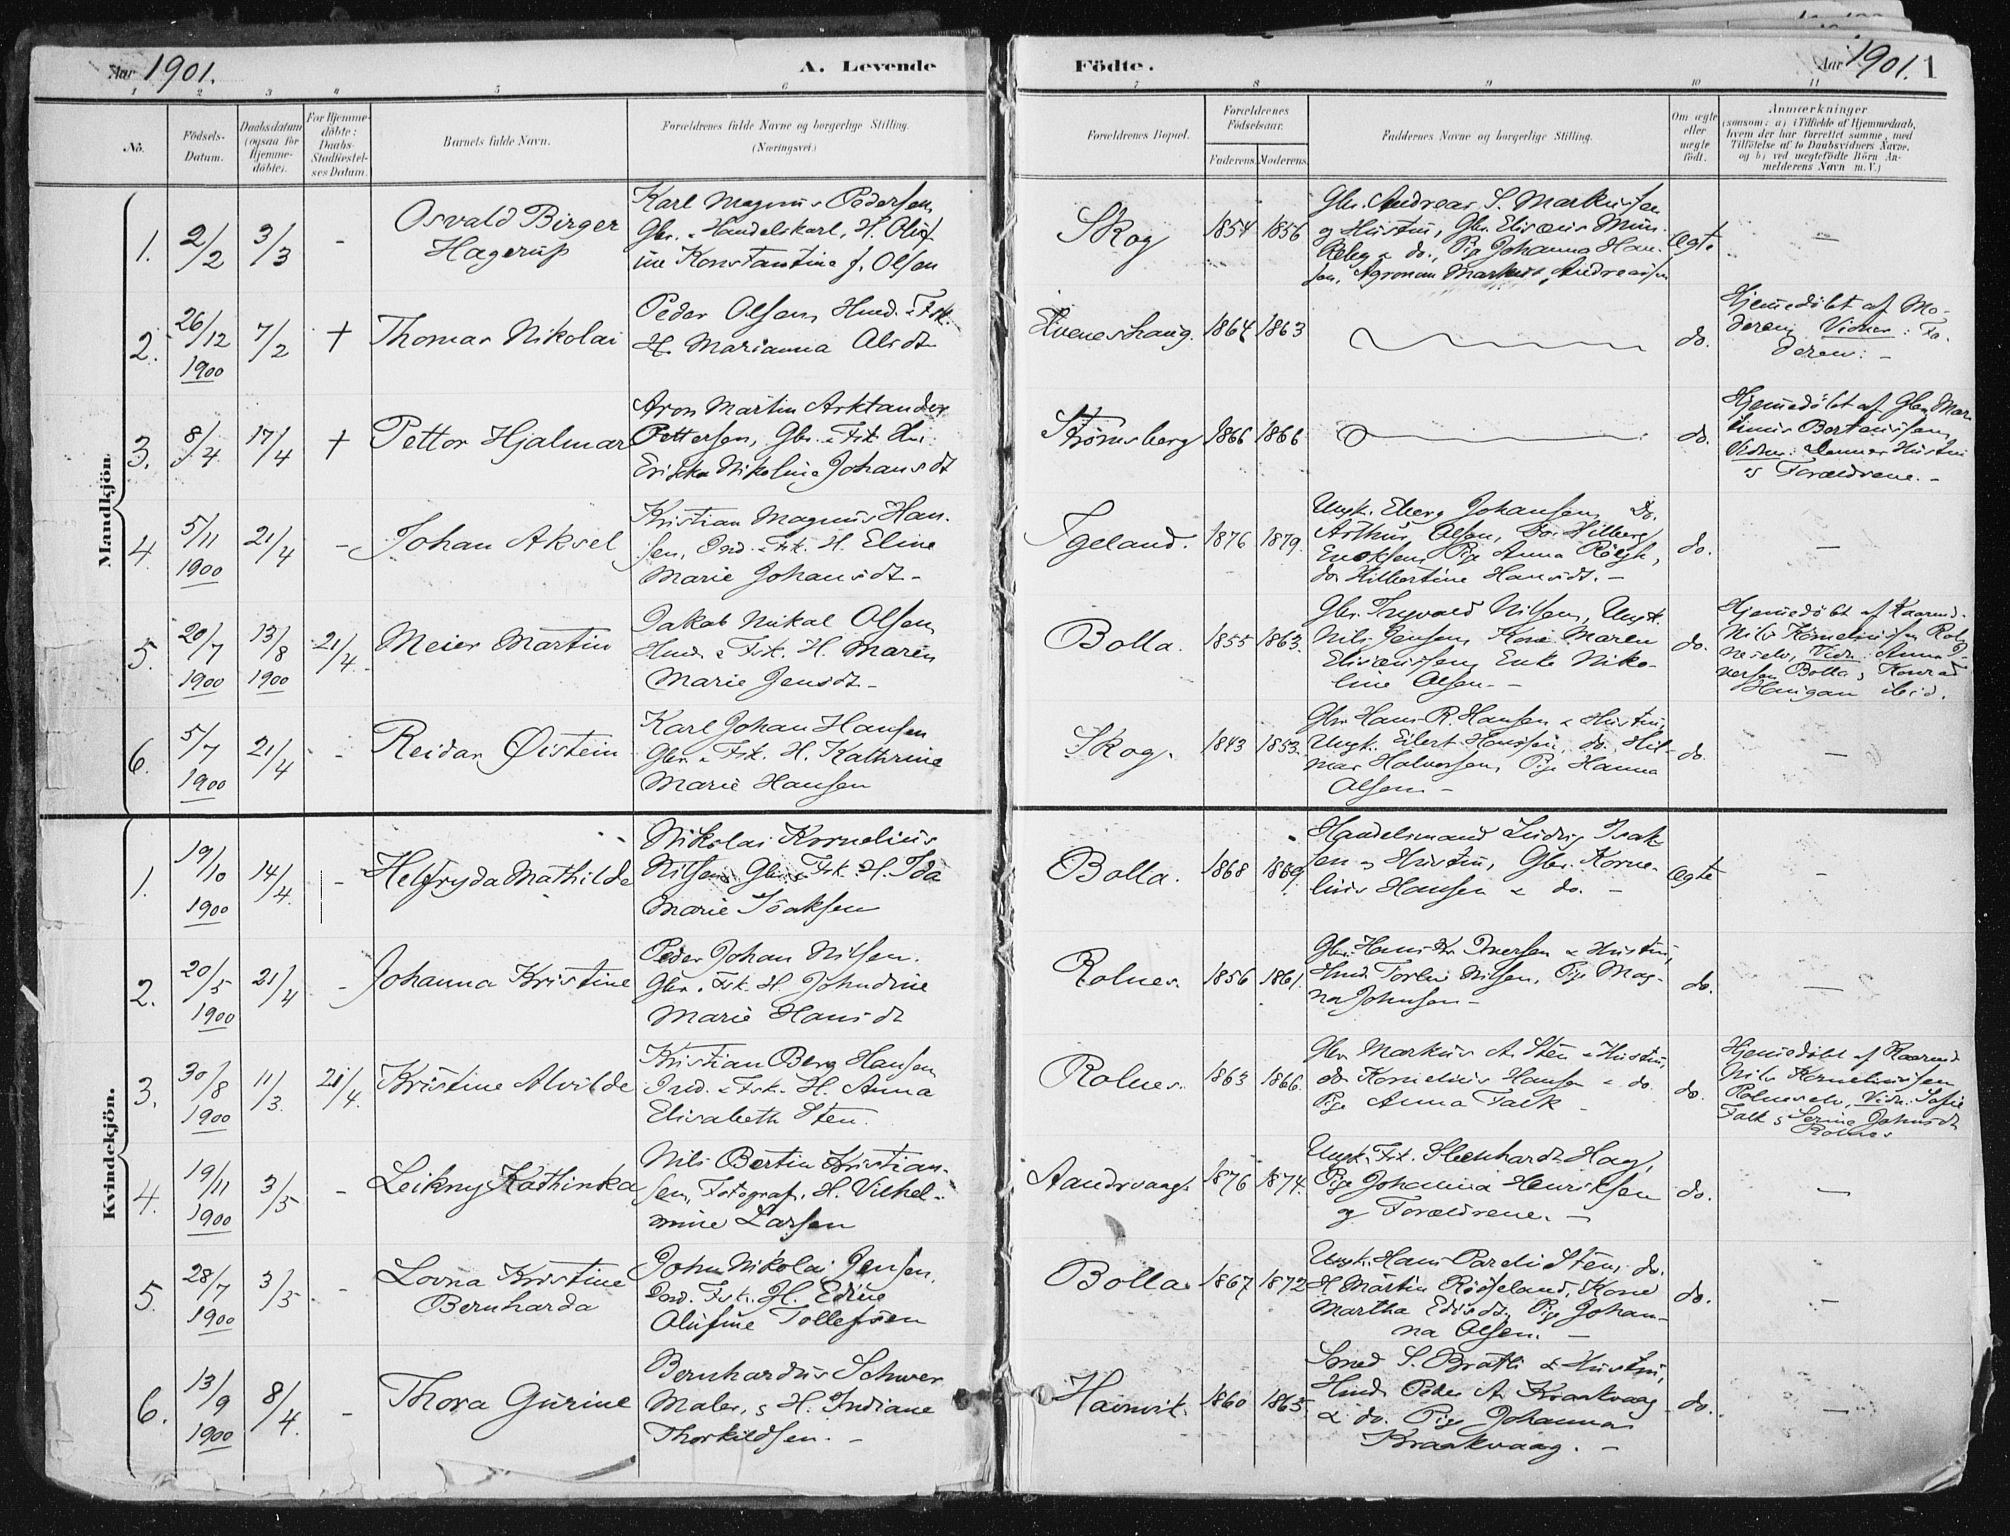 Aar 1901.
A. Levende
Födte.
Aar 1901. 1
1 2 3 4 5 6 7 8 9 10 11
No.
Födsels-Datum.
Daabsdatum (ogsaa for Hjemmedöbte).
For Hjemmedöbte: Daabs-Stadfæstelses Datum.
Barnets fulde Navn.
Forældrenes fulde Navne og borgerlige Stilling.
(Næringsvei.)
Forældrenes Bopæl.
Forældrenes Födselsaar.
Faderens. Moderens.
Faddernes Navne og borgerlige Stilling.
Om ægte eller uægte födt.
Anmærkninger
(saasom: a) i Tilfælde af Hjemmedaab,
hvem der har forrettet samme, med
Tilföielse af to Daabsvidners Navne,
og b) ved uægtefödte Börn Anmelderens Navn m. V.)
Mandkjön.
1. 2/2 3/3 -
Osvald Birger
Hagerup
Karl Magnus Pedersen
Gbr. & Handelskarl, H. Olufine
Konstantine f. Olsen
Skog 1854 1856
Gbr. Andreas S. Markussen
og Hustru, Gbr. Elisæus
& do., Pige Johanna Hansen,
Agronom Markus Andreassen
Ægte -
2. 26/12 1900 7/2 +
Thomas Nikolai
Peder Olsen, Hmd. & Fsk.
H. Marianna Alsdt.
Eveneshaug. 1864 1863
do.
Hjemmedöbt af Moderen,
Vidner: Faderen: -
3. 8/4 17/4 +
Petter Hjalmar
Aron Martin Arktander
Pettersen, Gbr. & Fsk. Hu:
Erikka Nikoline Johansdt
Strömsberg 1866 1866
do.
Hjemmedöbt af Gbr. Martinus
Berteussen,
Vidner: Dennes Hustru
og Forældrene. -
4. 5/11 1900 21/4 -
Johan Aksel
Kristian Magnus Hansen,
Ind. & Fsk. H. Eline
Marie Johansdt. -
Tgeland. 1876 1879.
Ungk. Eberg Johansen, Do.
Arthur Olsen, Do. Hilberg
Enoksen, Pige Anna
do. Hilbertine Hansdt. -
do. -
5. 20/7 1900 13/8 1900 21/4.
Meier Martin
Jakob Nikal Olsen
Hmd. & Fsk. H. Maren
Marie Jensdt -
Bolla. 1855 1863.
Gbr. Ingvald Nilsen, Ungk.
Nils Jensen, Kone Maren
Elisæussen, Enke Nikoline
Olsen. -
do.
Hjemmedöbt af Kaarmd.
Nils Kornelinssen Rolneselv,
Vidn: Anna Iversen
Bolla, Konrad
Haugan ibid.
6. 5/7 1900 21/4 -
Reidar Øistein
Karl Johan Hansen
Gbr. & Fsk. H. Kathrine
Marie Hansen
Skog. 1843 1853.
Gbr. Hans R. Hansen & Hustru,
Ungk. Eilert Hansen, do. Hilmar
Halvorsen, Pige Hanna
Olsen -
do. -
Kvindekjön.
1. 19/10 1900 14/4. -
Helfryda Mathilde
Nikolai Kornelius
Nilsen Gbr. & Fsk. H. Ida
Marie Isaksen
Bolla. 1868 1869.
Handelsmand Ludvig Isaksen
& Hustru, Gbr. Kornelius
Hansen & do. -
Ægte -
2. 20/5 1900 21/4 -
Johanna Kristine
Peder Johan Nilsen.
Gbr. & Fsk. H. Johndine
Marie Hansdt
Rolnes. 1856 1861.
Gbr. Hans Kr. Iversen & Hustru,
Hmd. Torlei Nilsen, Pige Magna
Johnsen -
do. -
3. 30/8 1900 11/3. 21/4.
Kristine Alvilde
Kristian Berg Hansen
Ind. & Fsk. H. Anna
Elisabeth Sten.
Rolnes. 1863 1866.
Gbr. Markus A. Sten & Hustru,
do. Kornelius Hansen & do.
Pige Anna Falk -
do.
Hjemmedöbt af Kaarmd
Nils Kornelinssen
Rolneselv, Vidn: Sofie
Falk & Serine Johnsdt
Rolnes
4. 19/11 1900 3/5 -
Leikny Kathinka
Nils Bertin Kristiansen,
Fotograf, H. Vilhelmine
Larsen
Aandsvaag. 1876 1874.
Ungk. Fsk. Stenhardt Hag,
Pige Johanna Henriksen
og Forældrene. -
do. -
5. 28/7 1900 3/5 -
Lovna Kristine
Bernharda
John Nikolai Jensen,
Ind. Fsk. H. Edine
Olufine Tollefsen
Bolla. 1867 1872
Ungk. Hans Pareli Sten, do.
H. Martin Rödseland, Kone
Martha Edisdt, Pige Johanna
Olsen. -
do. -
6. 13/9 1900 8/4. -
Thora Gurine
Bernhardus Schwer
Maler, & H. Indiane
Thorkildsen. -
Havnvik. 1860 1865.
Smed S. Bratli & Hustru,
Hmd. Peder A. Kraakvaag
& do. Pige Johanna
Kraakvaag. -
do. -